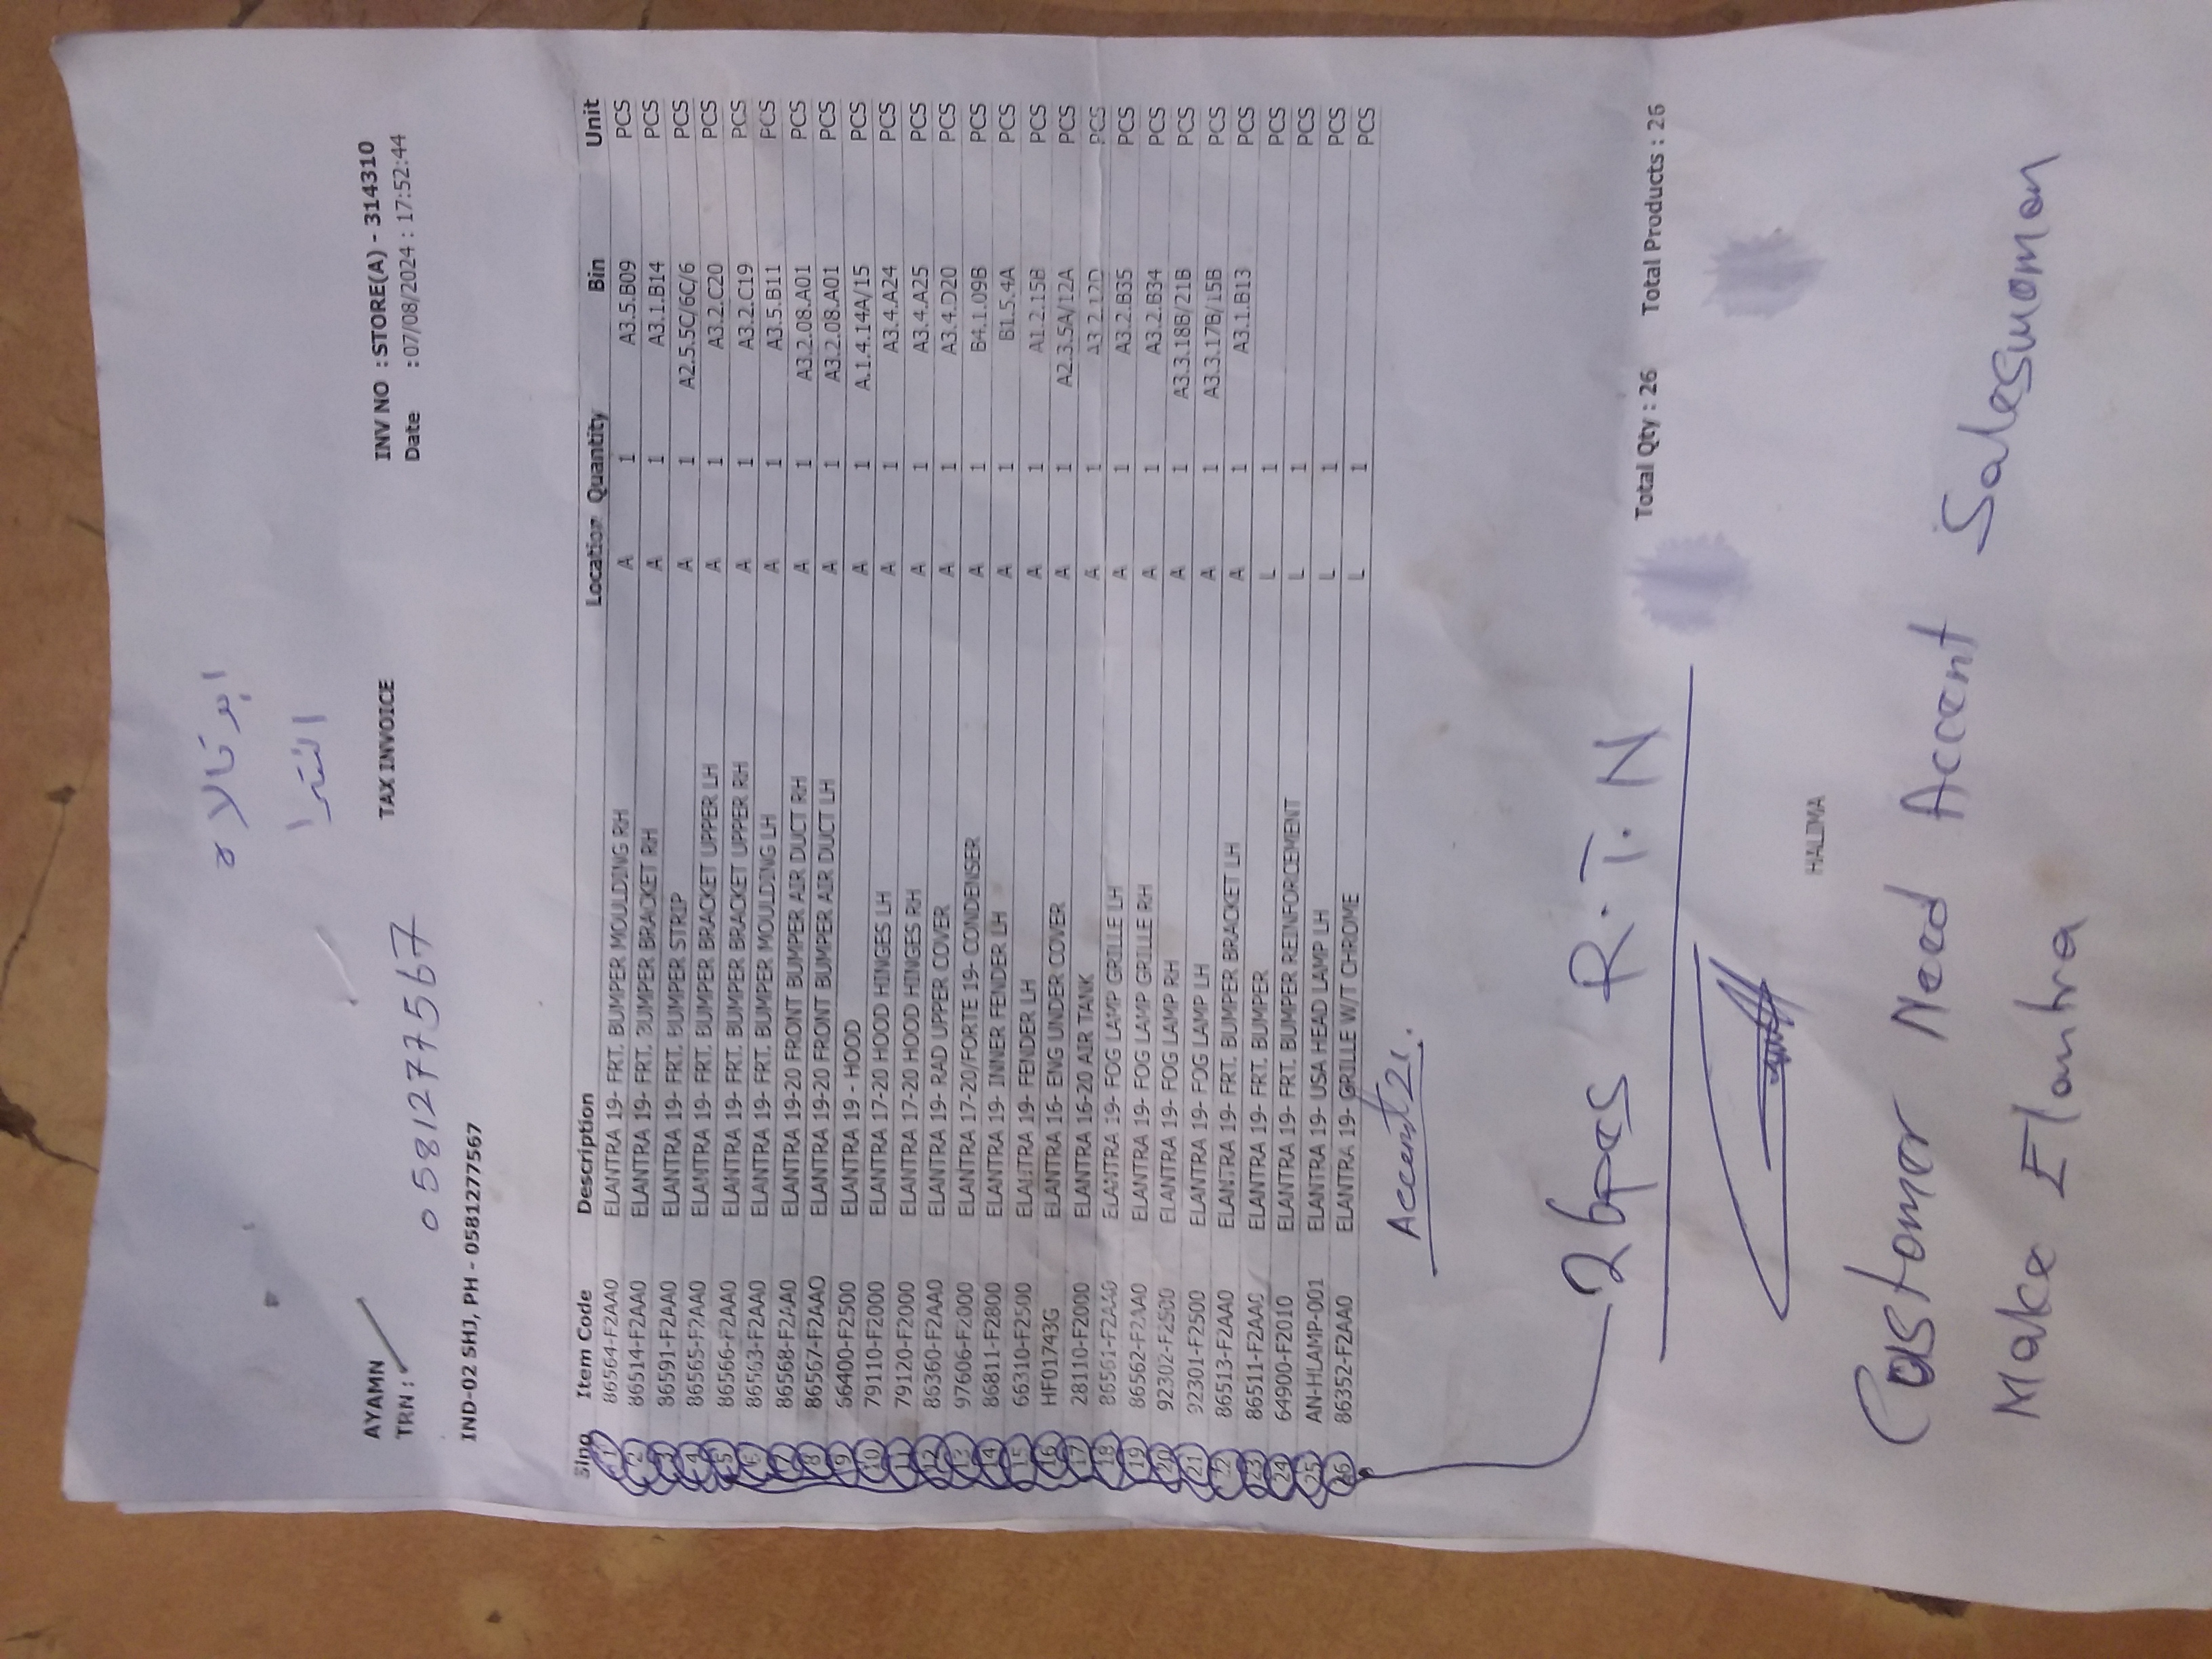 ابو تالا ه
النترا
AYAMN TAX INVOICE INV NO : STORE(A) - 314310
TRN : Date : 07/08/2024 : 17:52:44
0581277567
IND-02 SHJ, PH - 0581277567
Slno Item Code Description Location Quantity Bin Unit
1 86564-F2AA0 ELANTRA 19- FRT. BUMPER MOULDING RH A 1 A3.5.B09 PCS
2 86514-F2AA0 ELANTRA 19- FRT. BUMPER BRACKET RH A 1 A3.1.B14 PCS
3 86591-F2AA0 ELANTRA 19- FRT. BUMPER STRIP A 1 A2.5.5C/6C/6 PCS
4 86565-F2AA0 ELANTRA 19- FRT. BUMPER BRACKET UPPER LH A 1 A3.2.C20 PCS
5 86566-F2AA0 ELANTRA 19- FRT. BUMPER BRACKET UPPER RH A 1 A3.2.C19 PCS
6 86563-F2AA0 ELANTRA 19- FRT. BUMPER MOULDING LH A 1 A3.5.B11 PCS
7 86568-F2AA0 ELANTRA 19-20 FRONT BUMPER AIR DUCT RH A 1 A3.2.08.A01 PCS
8 86567-F2AAO ELANTRA 19-20 FRONT BUMPER AIR DUCT LH A 1 A3.2.08.A01 PCS
9 66400-F2500 ELANTRA 19 - HOOD A 1 A.1.4.14A/15 PCS
10 79110-F2000 ELANTRA 17-20 HOOD HINGES LH A 1 A3.4.A24 PCS
11 79120-F2000 ELANTRA 17-20 HOOD HINGES RH A 1 A3.4.A25 PCS
12 86360-F2AA0 ELANTRA 19- RAD UPPER COVER A 1 A3.4.D20 PCS
13 97606-F2000 ELANTRA 17-20/FORTE 19- CONDENSER A 1 B4.1.09B PCS
14 86811-F2800 ELANTRA 19- INNER FENDER LH A 1 B1.5.4A PCS
15 66310-F2500 ELANTRA 19- FENDER LH A 1 A1.2.15B PCS
16 HF01743G ELANTRA 16- ENG UNDER COVER A 1 A2.3.5A/12A PCS
17 28110-F2000 ELANTRA 16-20 AIR TANK A 1 A3.2.17D PCS
18 86561-F2AA0 ELANTRA 19- FOG LAMP GRILLE LH A 1 A3.2.B35 PCS
19 86562-F2AA0 ELANTRA 19- FOG LAMP GRILLE RH A 1 A3.2.B34 PCS
20 92302-F2500 ELANTRA 19- FOG LAMP RH A 1 A3.3.18B/21B PCS
21 92301-F2500 ELANTRA 19- FOG LAMP LH A 1 A3.3.17B/15B PCS
22 86513-F2AA0 ELANTRA 19- FRT. BUMPER BRACKET LH A 1 A3.1.B13 PCS
23 86511-F2AA0 ELANTRA 19- FRT. BUMPER L 1 PCS
24 64900-F2010 ELANTRA 19- FRT. BUMPER REINFORCEMENT L 1 PCS
25 AN-HLAMP-001 ELANTRA 19- USA HEAD LAMP LH L 1 PCS
26 86352-F2AA0 ELANTRA 19- GRILLE W/T CHROME L 1 PCS
Accent 21.
26pcs R.T.N
Total Qty : 26 Total Products : 26
HALIMA
Customer Need Accent Saleswoman
Make Elantra